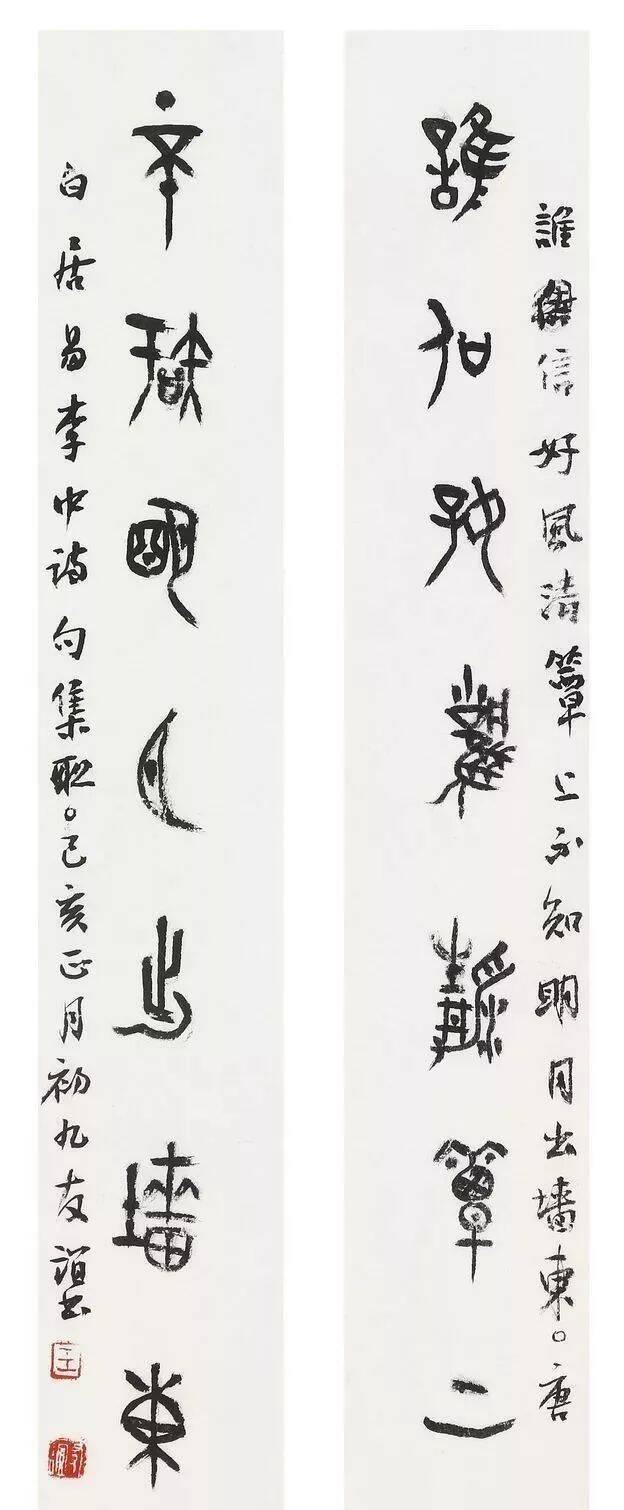 誰信好風清簟上不知明月出墻東。唐
誰信好風清簟上
不知明月出墻東
白居易李中詩句集聯。己亥正月初九友誼書